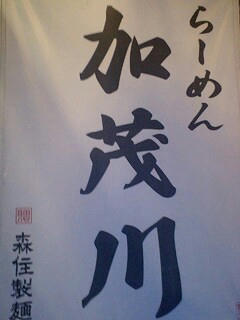 らーめん
加茂川
森住製麺